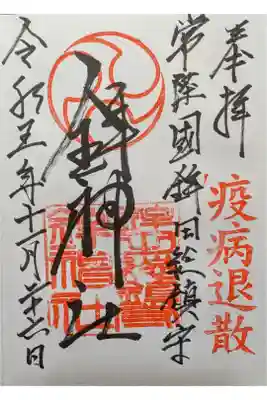 奉拝
疫病退散
常陸國鉾田総鎮守
鉾神社
令和五年十一月廿六日